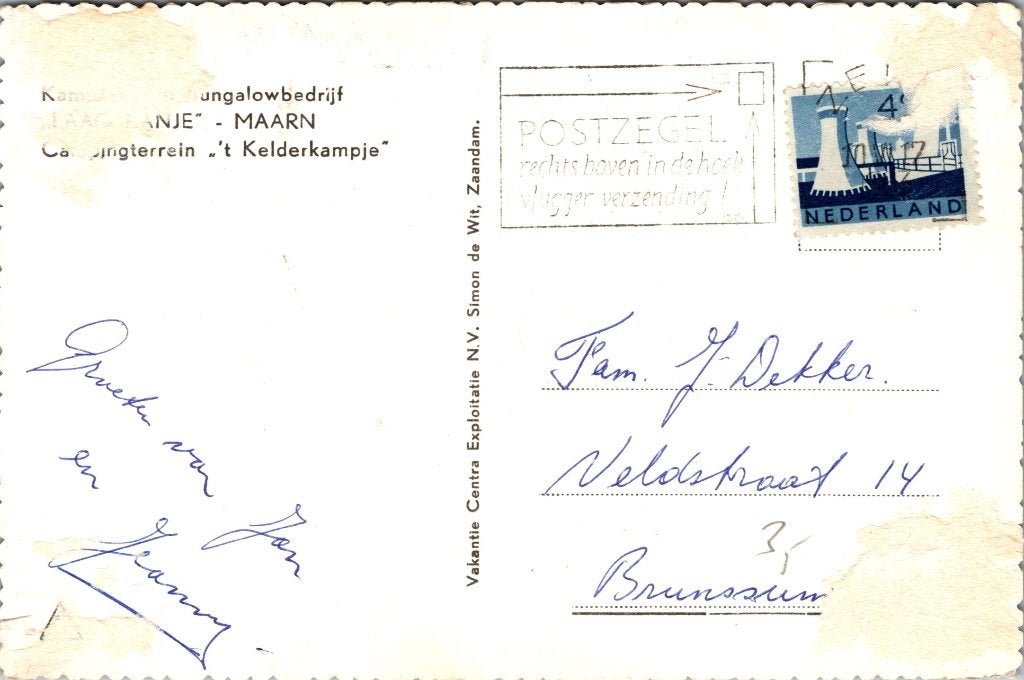 ungalowbedrijf
ANJE" - MAARN
Campingterrein „'t Kelderkampje"
Groeten van Jan
en Jeanny.
Vakantie Centra Exploitatie N.V. Simon de Wit, Zaandam.
POSTZEGEL
rechts boven in de hoek
vlugger verzending!
4
NEDERLAND
Fam. J. Dekker.
Veldstraat 14
3,-
Brunssum